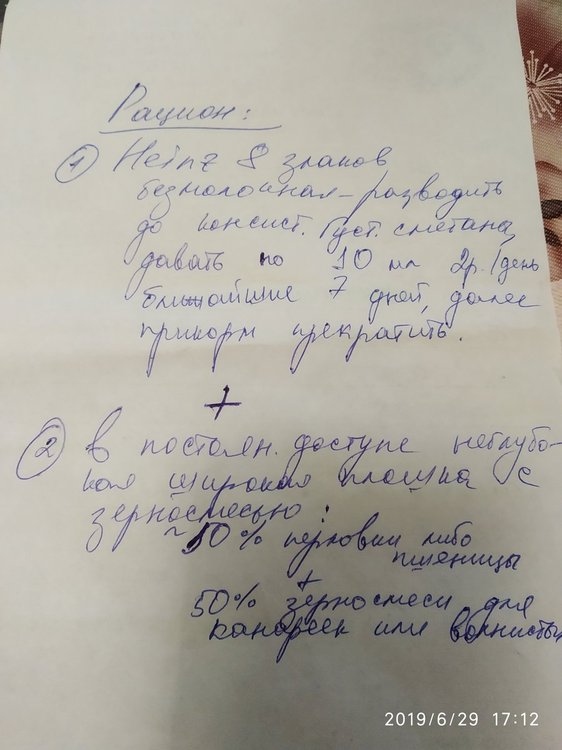 Рацион:
① Heinz 8 злаков
безмолочная – разводить
до консист. густ. сметана,
давать по 10 мл 2р./день
ближайшие 7 дней, далее
прикорм прекратить.
+
② в постоян. доступе неглубо-
кая широкая плошка с
зерносмесью:
~50% перловки либо
пшеницы
+
50% зерносмеси для
канареек или волнистых
2019/6/29 17:12